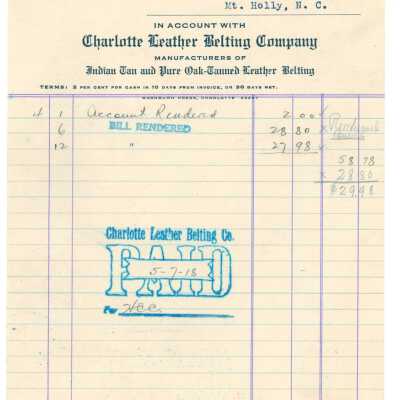 Mt. Holly, N. C.
IN ACCOUNT WITH
Charlotte Leather Belting Company
MANUFACTURERS OF
Indian Tan and Pure Oak-Tanned Leather Belting
TERMS: 2 PER CENT FOR CASH IN 10 DAYS FROM INVOICE, OR 30 DAYS NET:
4 1 Account Rendered 2 00 ✓
6 BILL RENDERED 28 80 x
12 " 27 98 ✓
58 78
x 28 80
$29.98
Charlotte Leather Belting Co.
PAID
5-7-18
For HCC.